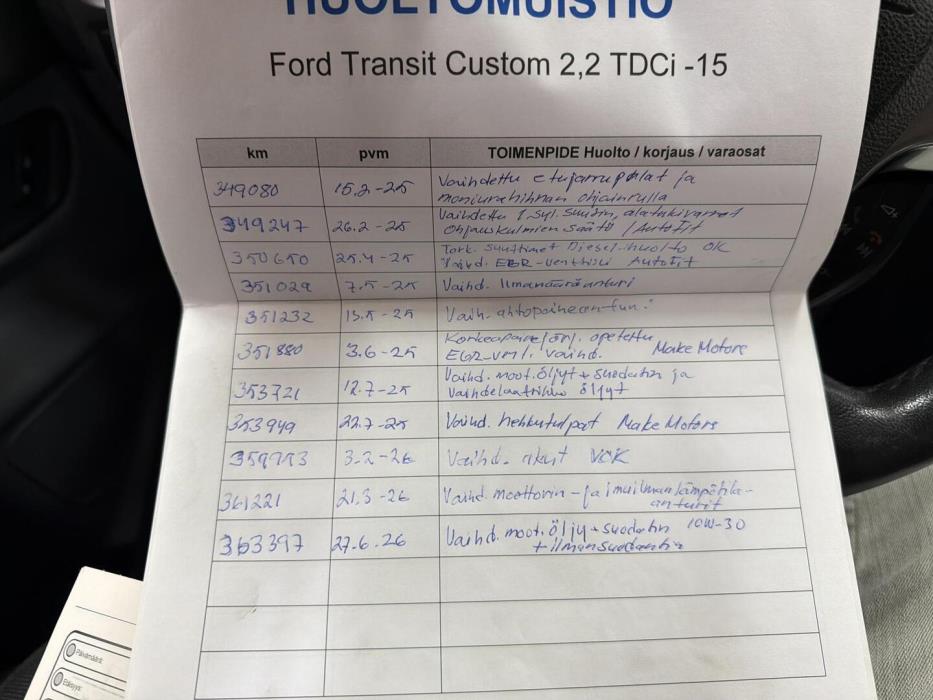 HUOLTOMUISTIO
Ford Transit Custom 2,2 TDCi -15
km pvm TOIMENPIDE Huolto / korjaus / varaosat
349080 15.2-25 Vaihdettu etujarrupalat ja
moniurahihnan ohjainrulla
349247 26.2-25 Vaihdettu 1 syl. suutin, alatukivarret
Ohjauskulmien säätö / Autofit
350650 25.4-25 Tark. suuttimet Diesel-huolto OK
Vaihd. EGR-venttiili Autofit
351029 7.5-25 Vaihd. Ilmamääräanturi
351232 15.5-25 Vaih. ahtopaineen tun.
351880 3.6-25 opetettu
EGR-vent. vaihd. Make Motors
353721 12.7-25 Vaihd. moot.öljyt + suodatin ja
vaihdelaatikko öljyt
353949 22.7-25 Vaihd. hehkutulpat Make Motors
3-2-26 Vaihd. akut
361221 21.3-26 Vaihd. moottorin- ja imuilman lämpötila-
anturit
363397 27.6.26 Vaihd. moot.öljy + suodatin 10W-30
+ ilmansuodatin
Päivämäärä: